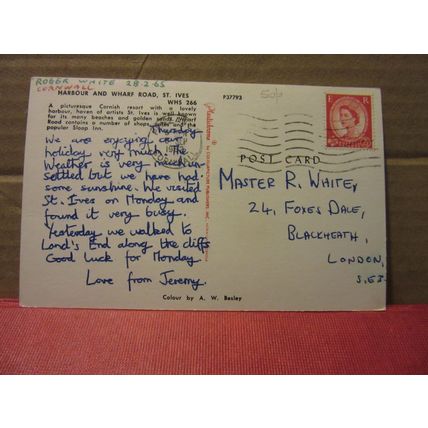 ROGER WHITE 28-2-65
CORNWALL
HARBOUR AND WHARF ROAD, ST. IVES
WHS 266
A picturesque Cornish resort with a lovely
harbour, haven of artists St. Ives is well known
for its many beaches and golden sands. Wharf
Road contains a number of shops, cafes and the
popular Sloop Inn.
Thursday
We are enjoying our
holiday very much. The
weather is very
settled but we have had
some sunshine. We visited
St. Ives on Monday and
found it very busy.
Yesterday we walked to
Land's End along the cliffs
Good Luck for Monday.
Love from Jeremy.
Colour by A. W. Besley
P37793
POST CARD
E R
MASTER R. WHITE,
24, FOXES DALE,
BLACKHEATH,
LONDON,
S.E3.